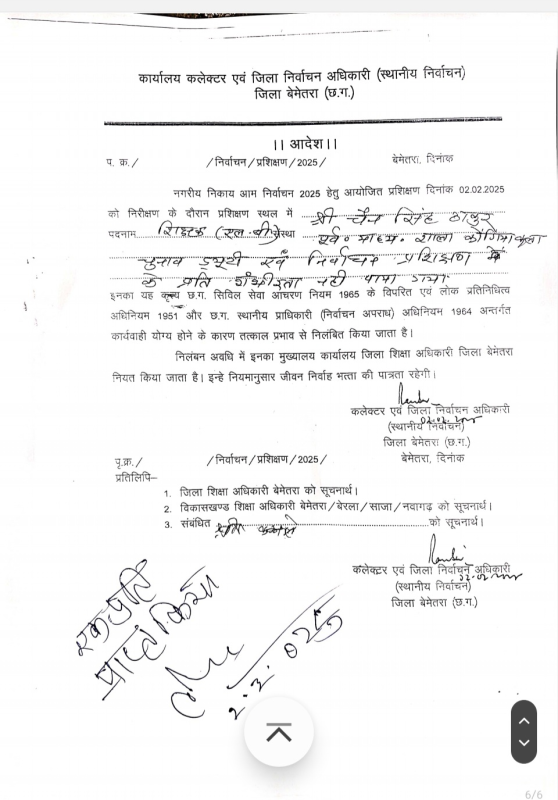 कार्यालय कलेक्टर एवं जिला निर्वाचन अधिकारी (स्थानीय निर्वाचन)
जिला बेमेतरा (छ.ग.)
।। आदेश।।
प. क्र./ /निर्वाचन/प्रशिक्षण/2025/ बेमेतरा, दिनांक
नगरीय निकाय आम निर्वाचन 2025 हेतु आयोजित प्रशिक्षण दिनांक 02.02.2025
को निरीक्षण के दौरान प्रशिक्षण स्थल में श्री चैन सिंह ठाकुर
पदनाम शिक्षक (एल.बी) संस्था पूर्व. माध्य. शाला
चुनाव ड्यूटी एवं निर्वाचन प्रशिक्षण
के प्रति गंभीरता नही पाया गया
इनका यह कृत्य छ.ग. सिविल सेवा आचरण नियम 1965 के विपरित एवं लोक प्रतिनिधित्व
अधिनियम 1951 और छ.ग. स्थानीय प्राधिकारी (निर्वाचन अपराध) अधिनियम 1964 अन्तर्गत
कार्यवाही योग्य होने के कारण तत्काल प्रभाव से निलंबित किया जाता है।
निलंबन अवधि में इनका मुख्यालय कार्यालय जिला शिक्षा अधिकारी जिला बेमेतरा
नियत किया जाता है। इन्हे नियमानुसार जीवन निर्वाह भत्ता की पात्रता रहेगी।
कलेक्टर एवं जिला निर्वाचन अधिकारी
(स्थानीय निर्वाचन)
जिला बेमेतरा (छ.ग.)
पृ.क्र./ /निर्वाचन/प्रशिक्षण/2025/ बेमेतरा, दिनांक
प्रतिलिपि–
1. जिला शिक्षा अधिकारी बेमेतरा को सूचनार्थ।
2. विकासखण्ड शिक्षा अधिकारी बेमेतरा/बेरला/साजा/नवागढ़ को सूचनार्थ।
3. संबंधित को सूचनार्थ।
कलेक्टर एवं जिला निर्वाचन अधिकारी
(स्थानीय निर्वाचन)
जिला बेमेतरा (छ.ग.)
एक प्रति
प्राप्त किया
6/6